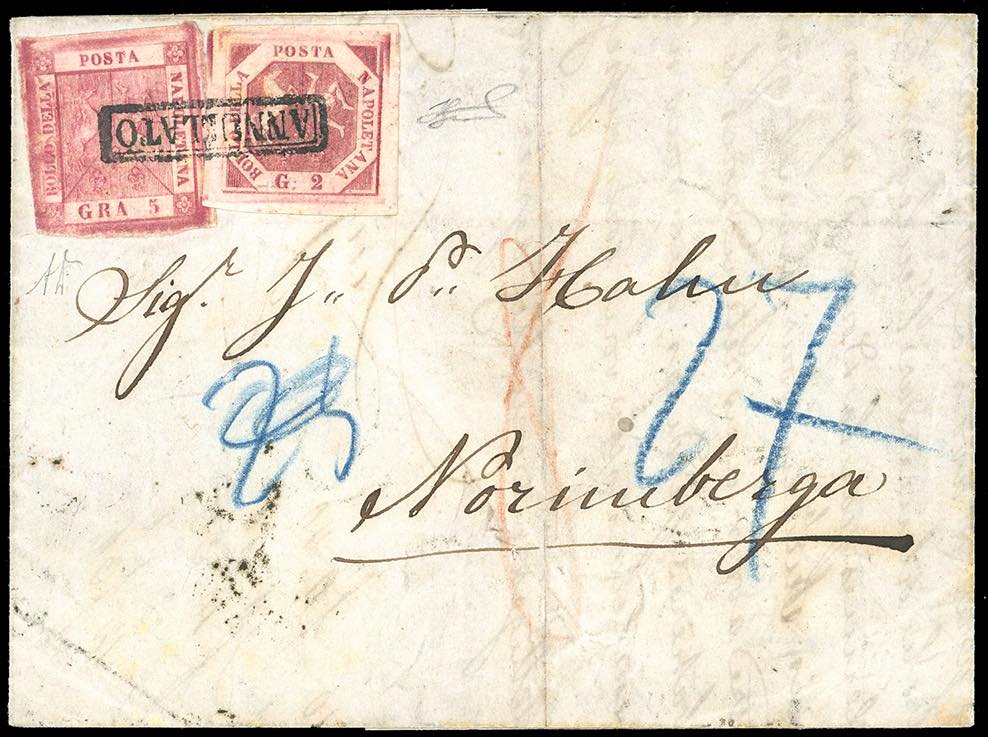 POSTA
NAPOLETANA
BOLLO DELLA
GRA 5
POSTA
NAPOLETANA
BOLLO DELLA
G. 2
ANNULLATO
Sigr. J. P. Hahn
27
Norimberga